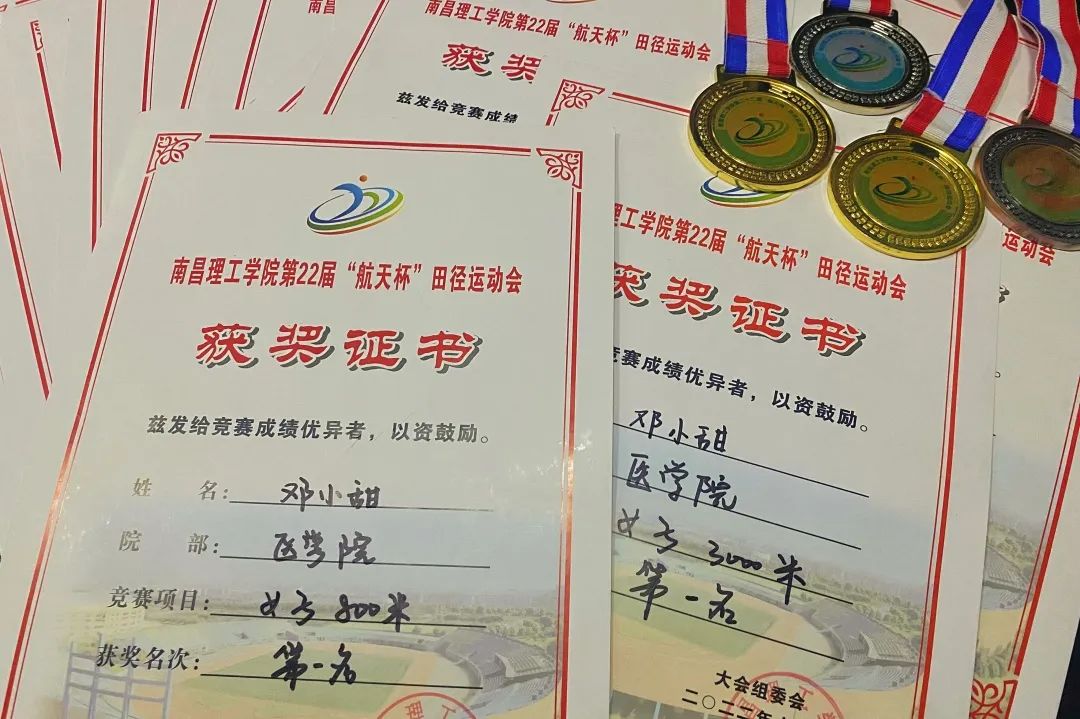 南昌理工学院第22届“航天杯”田径运动会
获奖
兹发给竞赛成绩
南昌理工学院第22届“航天杯”田径运动会
获奖证书
兹发给竞赛成绩优异者，以资鼓励。
姓 名：邓小甜
院 部：医学院
竞赛项目：女子800米
获奖名次：第一名
理工学院第22届“航天杯”田径运动会
获奖证书
竞赛成绩优异者，以资鼓励。
邓小甜
医学院
女子3000米
第一名
大会组委会
二〇二二年
运动会
南昌